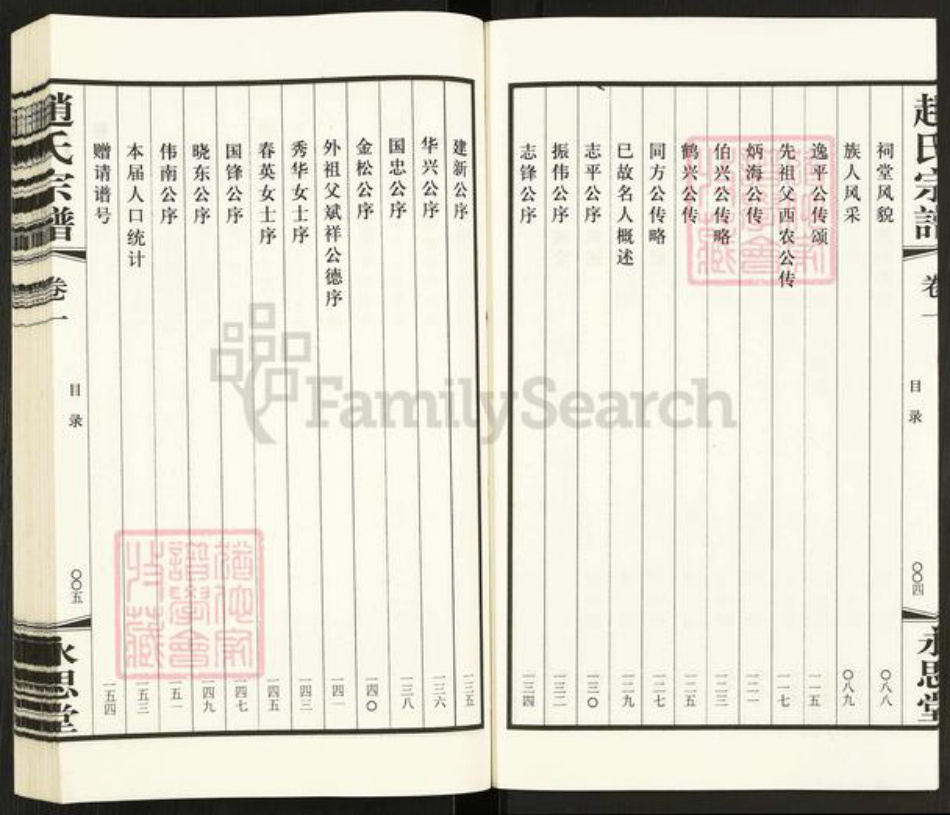 赵氏宗谱 卷一 目录 〇〇四 永思堂
祠堂风貌 〇八八
族人风采 〇八九
逸平公传颂 一一五
先祖父西农公传 一一七
炳海公传 一二一
伯兴公传略 一二三
鹤兴公传 一二五
同方公传略 一二七
已故名人概述 一二九
志平公序 一三〇
振伟公序 一三二
志锋公序 一三四
建新公序 一三五
华兴公序 一三六
国忠公序 一三八
金松公序 一四〇
外祖父斌祥公德序 一四一
秀华女士序 一四三
春英女士序 一四五
国锋公序 一四七
晓东公序 一四九
伟南公序 一五一
本届人口统计 一五三
赠请谱号 一五四
赵氏宗谱 卷一 目录 〇〇五 永思堂
FamilySearch